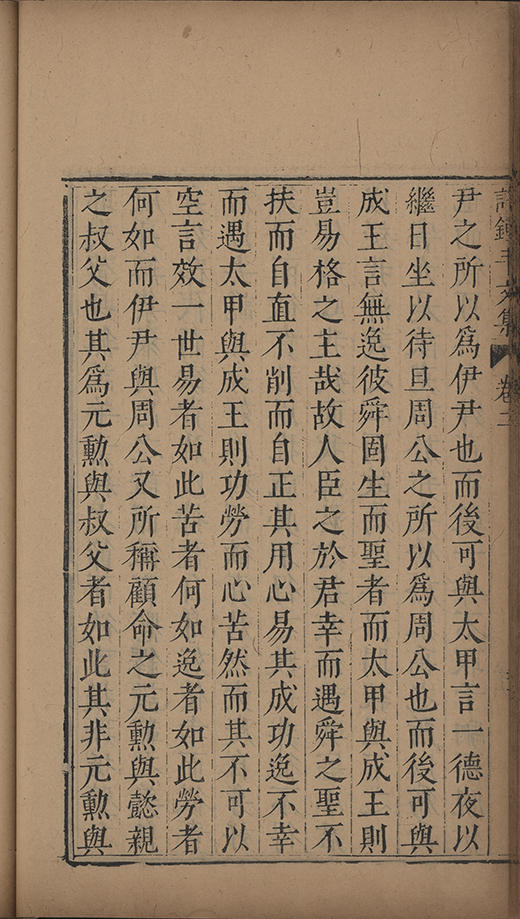 集 卷二
尹之所以爲伊尹也而後可與太甲言一德夜以
繼日坐以待旦周公之所以爲周公也而後可與
成王言無逸彼舜固生而聖者而太甲與成王則
豈易格之主哉故人臣之於君幸而遇舜之聖不
扶而自直不削而自正其用心易其成功逸不幸
而遇太甲與成王則功勞而心苦然而其不可以
空言效一世易者如此苦者何如逸者如此勞者
何如而伊尹與周公又所稱顧命之元勲與懿親
之叔父也其爲元勲與叔父者如此其非元勲與